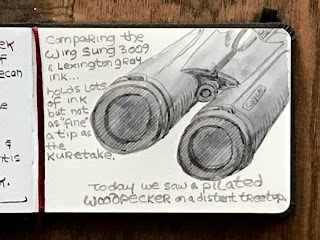 Comparing the
Wing Sung 3009
& Lexington Gray
ink...
holds lots
of ink
but not
as "fine"
a tip as
the
Kuretake.
Today we saw a pilated
WOODPECKER on a distant treetop.
ecan
&